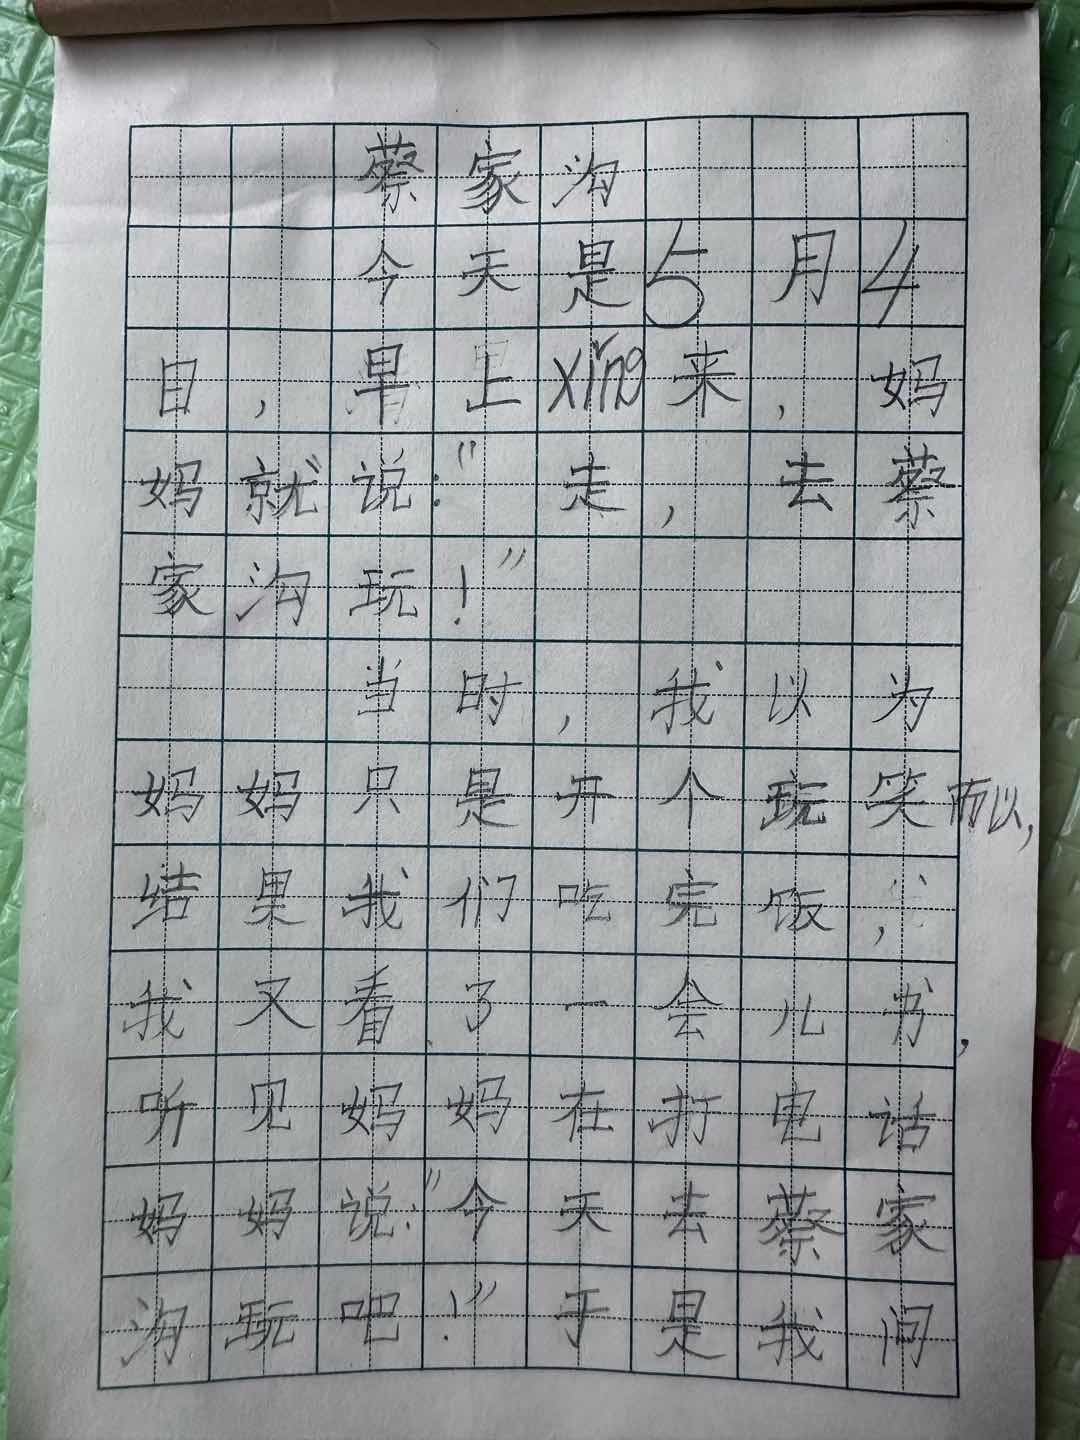 蔡家沟
今天是5月4
日，早上xǐng来，妈
妈就说：“走，去蔡
家沟玩！”
当时，我以为
妈妈只是开个玩笑而以，
结果我们吃完饭，
我又看了一会儿书，
听见妈妈在打电话
妈妈说：“今天去蔡家
沟玩吧！”于是我问